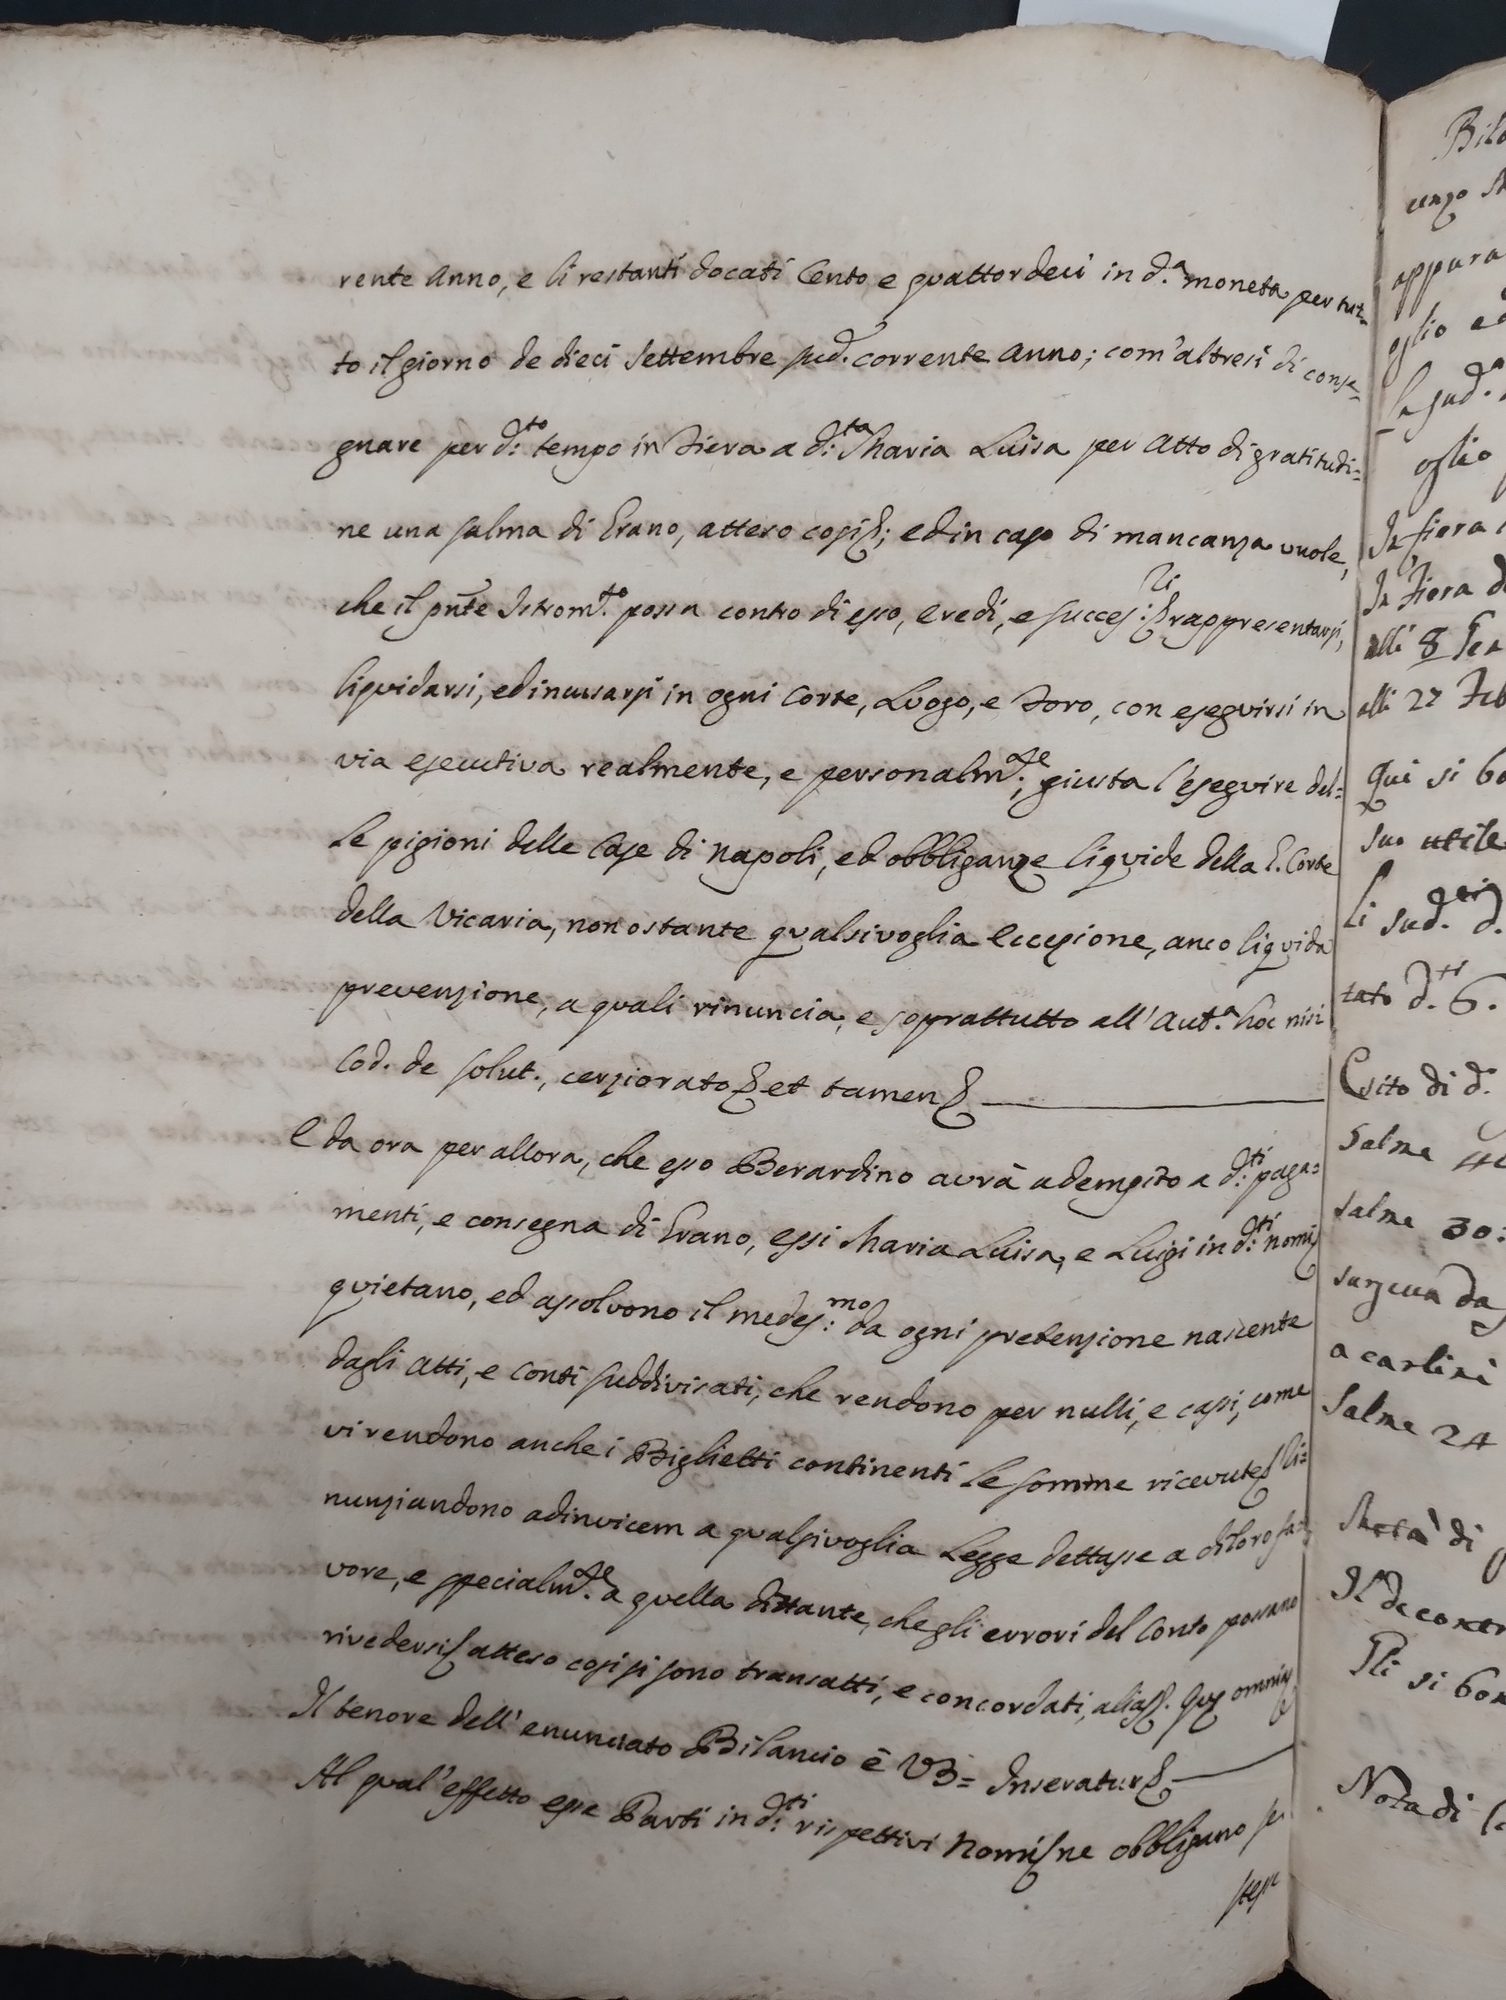 rente Anno, e li restanti docati Cento e quattordeci in d.ª moneta per tut=
to il giorno de dieci Settembre sud.º corrente Anno; com'altresì di conse=
gnare per d.to tempo in Fiera a d.ta Maria Luisa per Atto di gratitudi=
ne una salma di Grano, atteso così; ed in caso di mancanza vuole,
che il pnte Istrom.to possa contro di esso, eredi, e succes.ri rappresentarsi,
liquidarsi, ed incusarsi in ogni Corte, Luogo, e Foro, con eseguirsi in
via esecutiva realmente, e personalm.te; giusta l'eseguire del=
le pigioni delle Case di Napoli, ed obbliganze liquide della G. Corte
della Vicaria, non ostante qualsivoglia eccezione, anco liquida
prevenzione, a quali rinuncia, e soprattutto all'Aut.ª hoc nisi
Cod. de solut., cerziorato et tamen
E da ora per allora, che esso Berardino avrà adempito a d.ti paga=
menti, e consegna di Grano, essi Maria Luisa, e Luigi in d.ti nomi
quietano, ed assolvono il medes.mo da ogni pretenzione nascente
dagli Atti, e Conti suddivisati, che rendono per nulli, e cassi, come
vi rendono anche i Biglietti continenti le somme ricevute li=
nunziandono adinvicem a qualsivoglia Legge dettasse a di loro fa=
vore, e specialm.te a quella dittante, che gli errori del Conto possano
rivedersi atteso così si sono transatti, e concordati, alias. Que omnia
Il tenore dell'enunciato Bilancio è VZ= Inseratur
Al qual'effetto esse Parti in d.ti rispettivi Nomi ne obbligano se
stesse
Bila
cenzo
appura
oglio ed
la sud.ª
oglio
In fiera
In Fiera d
alli 8 Gen
alli 27 Feb
Qui si bo
suo utile
Li sud.ti d.
tato d.ti 6.
Esito di d.
Salme
Salme 30:
sanzeva da
a carlini
Salme 24
Metà di
Il de contr
Più si bon
Nota di